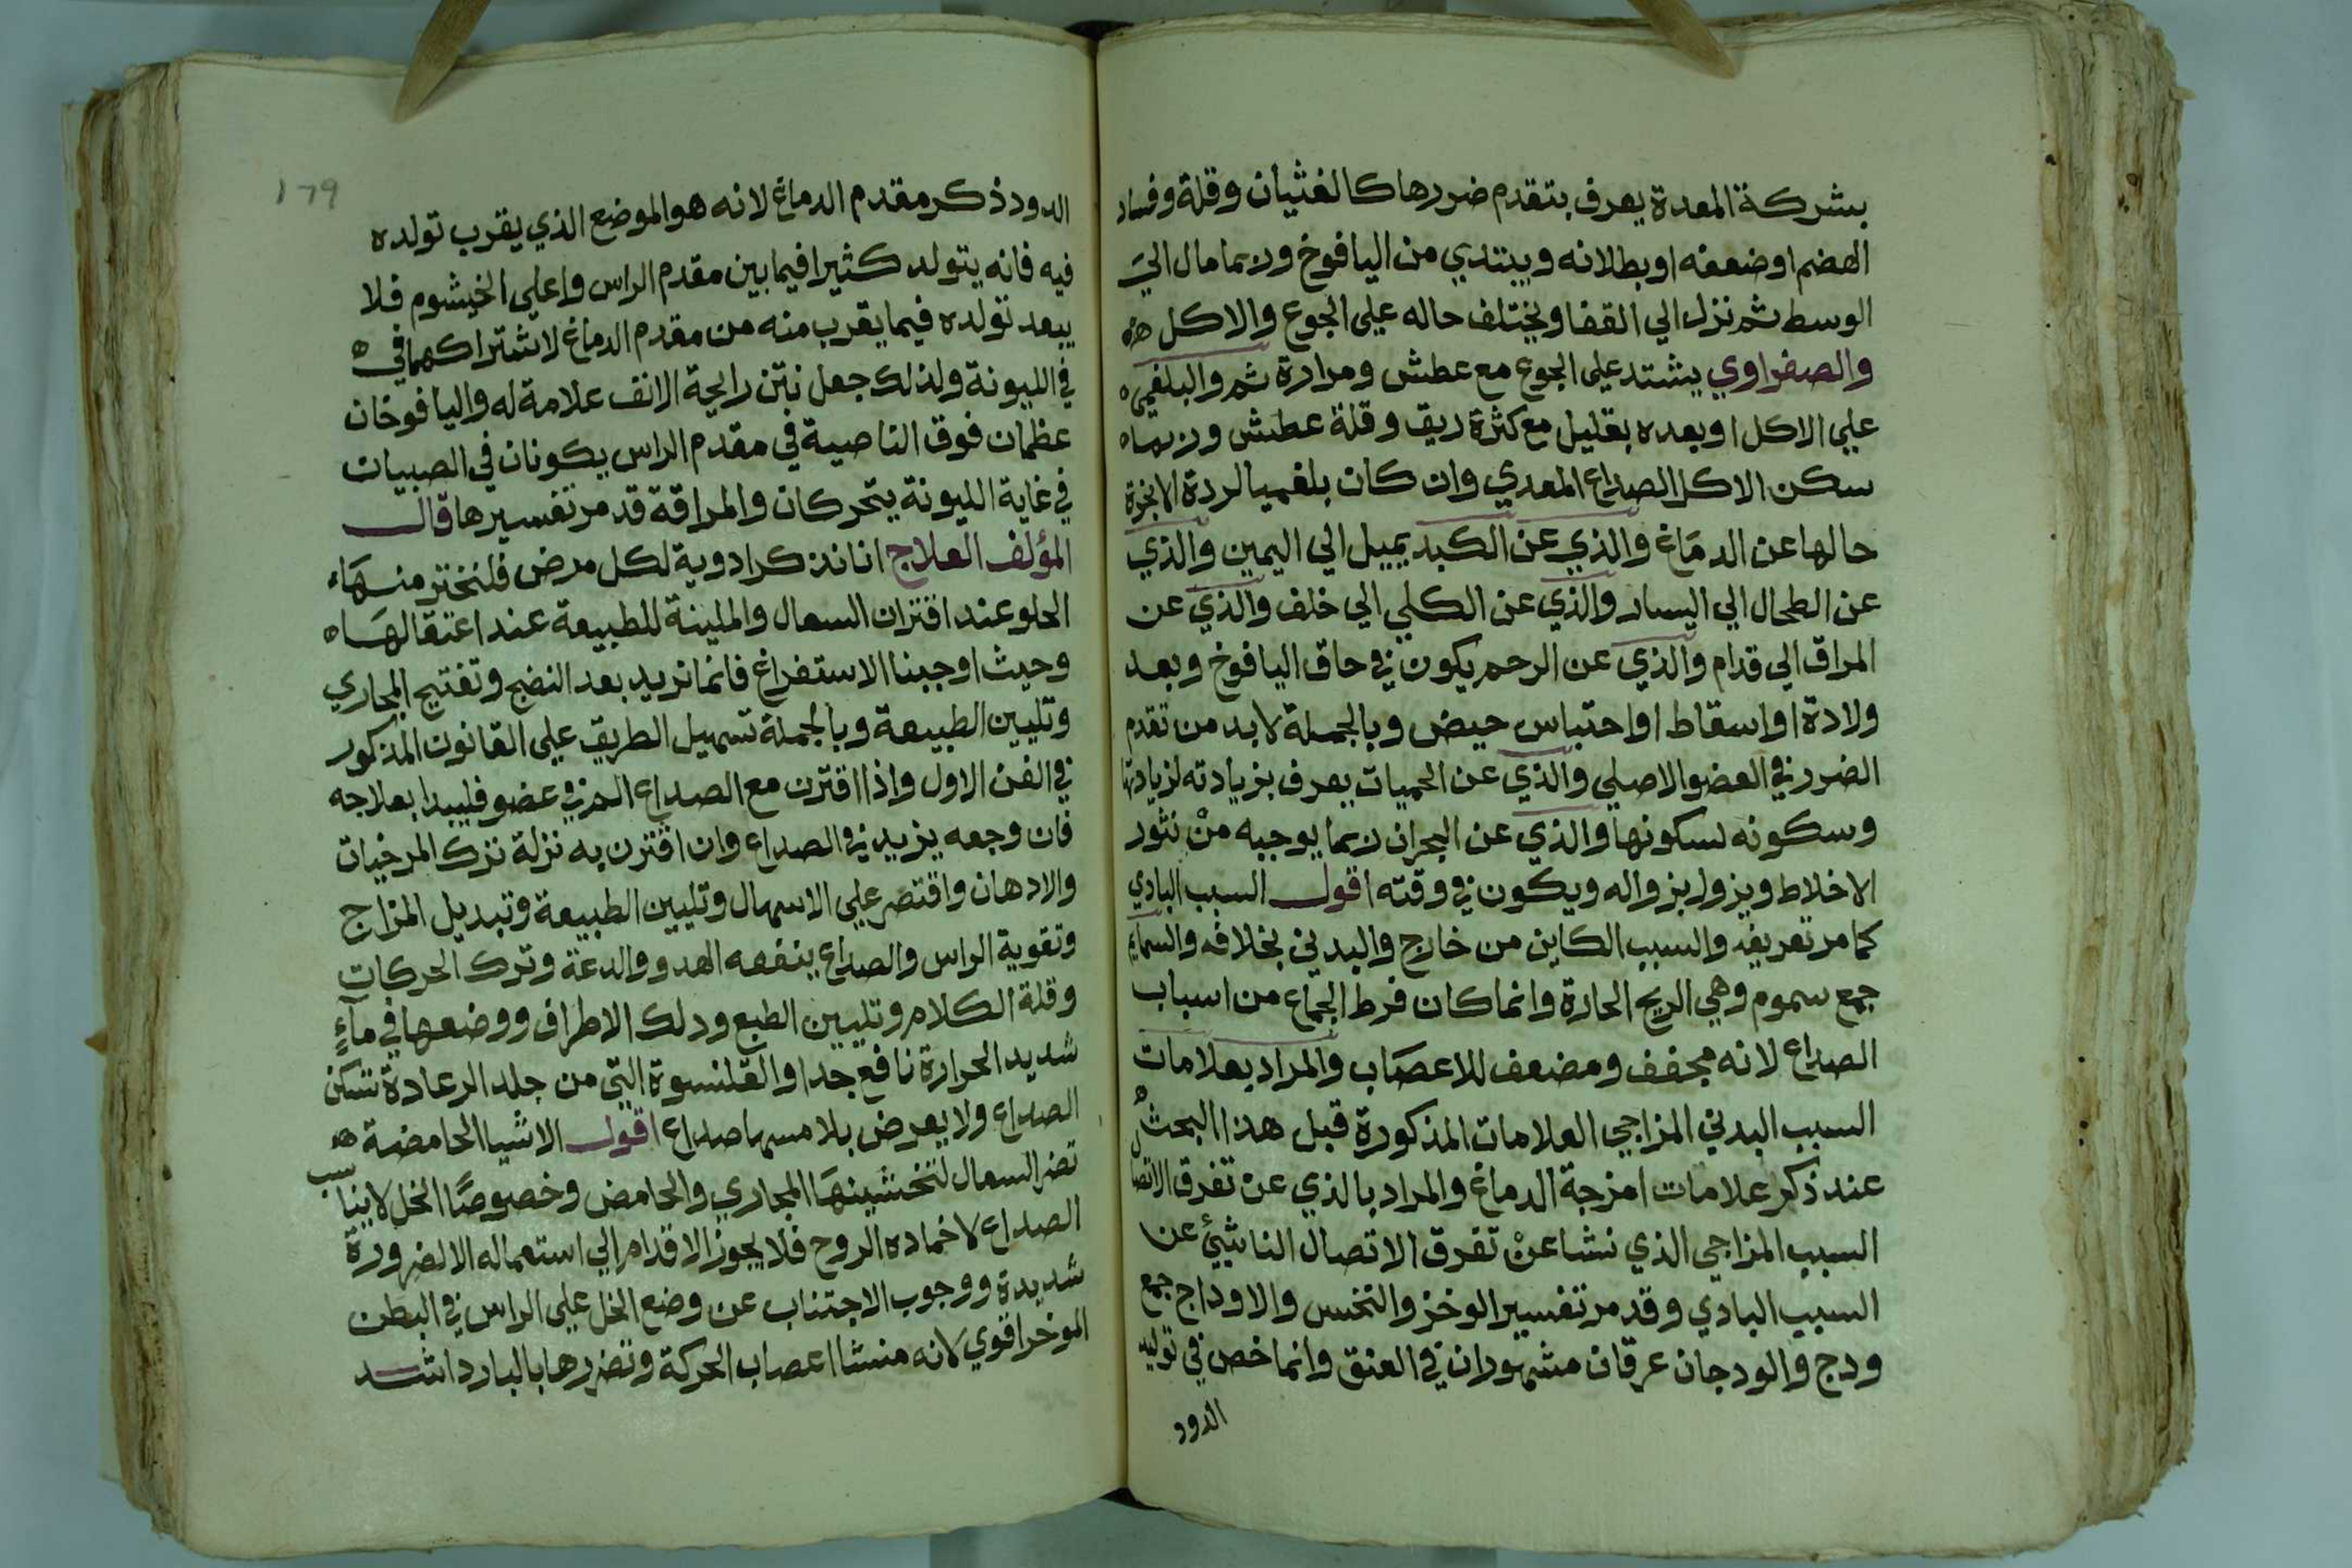 بشركة المعدة يعرف بتقدم ضررها كالغثيان وقلة وفساد
الهضم اوضعفه اوبطلانه ويبتدي من اليافوخ وربما مال الي
الوسط ثم نزل الي القفا ويختلف حاله علي الجوع والاكل
والصفراوي يشتد علي الجوع مع عطش ومرارة ثم والبلغمي
علي الاكل اوبعده بقليل مع كثرة ريق وقلة عطش وربما
سكن الاكل الصداع المعدي وان كان بلغميا لردة الابخرة
حالها عن الدماغ والذي عن الكبد يميل الي اليمين والذي
عن الطحال الي اليسار والذي عن الكلي الي خلف والذي عن
المراق الي قدام والذي عن الرحم يكون في حاق اليافوخ وبعد
ولادة اواسقاط اواحتباس حيض وبالجملة لابد من تقدم
الضرر في العضو الاصلي والذي عن الحميات يعرف بزيادته لزيادتها
وسكونه لسكونها والذي عن البحران ربما يوجبه من نثور
الاخلاط ويزول بزواله ويكون في وقته اقول السبب البادي
كما مر تعريفه والسبب الكاين من خارج والبدني بخلافه والسمايم
جمع سموم وهي الريح الحارة وانما كان فرط الجماع من اسباب
الصداع لانه مجفف ومضعف للاعصاب والمراد بعلامات
السبب البدني المزاجي العلامات المذكورة قبل هذا البحث
عند ذكر علامات امزجة الدماغ والمراد بالذي عن تفرق الاتصال
السبب المزاجي الذي نشا عن تفرق الاتصال الناشئ عن
السبب البادي وقد مر تفسير الوخز والنخس والاوداج جمع
ودج والودجان عرقان مشهوران في العنق وانما خص في توليد
الدود
١٦٩
الدود ذكر مقدم الدماغ لانه هو الموضع الذي يقرب تولده
فيه فانه يتولد كثيرا فيما بين مقدم الراس واعلي الخيشوم فلا
يبعد تولده فيما يقرب منه من مقدم الدماغ لاشتراكهما في
في الليونة ولذلك جعل نتن رايحة الانف علامة له واليافوخان
عظمان فوق الناصية في مقدم الراس يكونان في الصبيان
في غاية الليونة يتحركان والمراقة قد مر تفسيرها قال
المؤلف العلاج انا نذكر ادوية لكل مرض فلنختر منها
الحلو عند اقتران السعال والملينة للطبيعة عند اعتقالها
وحيث اوجبنا الاستفراغ فانما نريد بعد النضج وتفتيح المجاري
وتليين الطبيعة وبالجملة تسهيل الطريق علي القانون المذكور
في الفن الاول واذا اقترن مع الصداع الم في عضو فليبدا بعلاجه
فان وجعه يزيد في الصداع وان اقترن به نزلة نزك المرخيات
والادهان واقتصر علي الاسهال وتليين الطبيعة وتبديل المزاج
وتقوية الراس والصداع ينفعه الهدو والدعة وترك الحركات
وقلة الكلام وتليين الطبع ودلك الاطراف ووضعها في ماء
شديد الحرارة نافع جدا والقلنسوة التي من جلد الرعادة تسكن
الصداع ولا يعرض بلامسها صداع اقول الاشيا الحامضة
تضر السعال لتخشينها المجاري والحامض وخصوصا الخل لايناسب
الصداع لاخماده الروح فلا يجوز الاقدام الي استعماله الا لضرورة
شديدة ووجوب الاجتناب عن وضع الخل علي الراس في البطن
الموخر اقوي لانه منشا اعصاب الحركة وتضررها بالبارد اشد